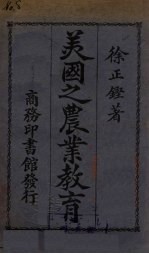 徐正鏗著
美國之農業教育
商務印書館發行